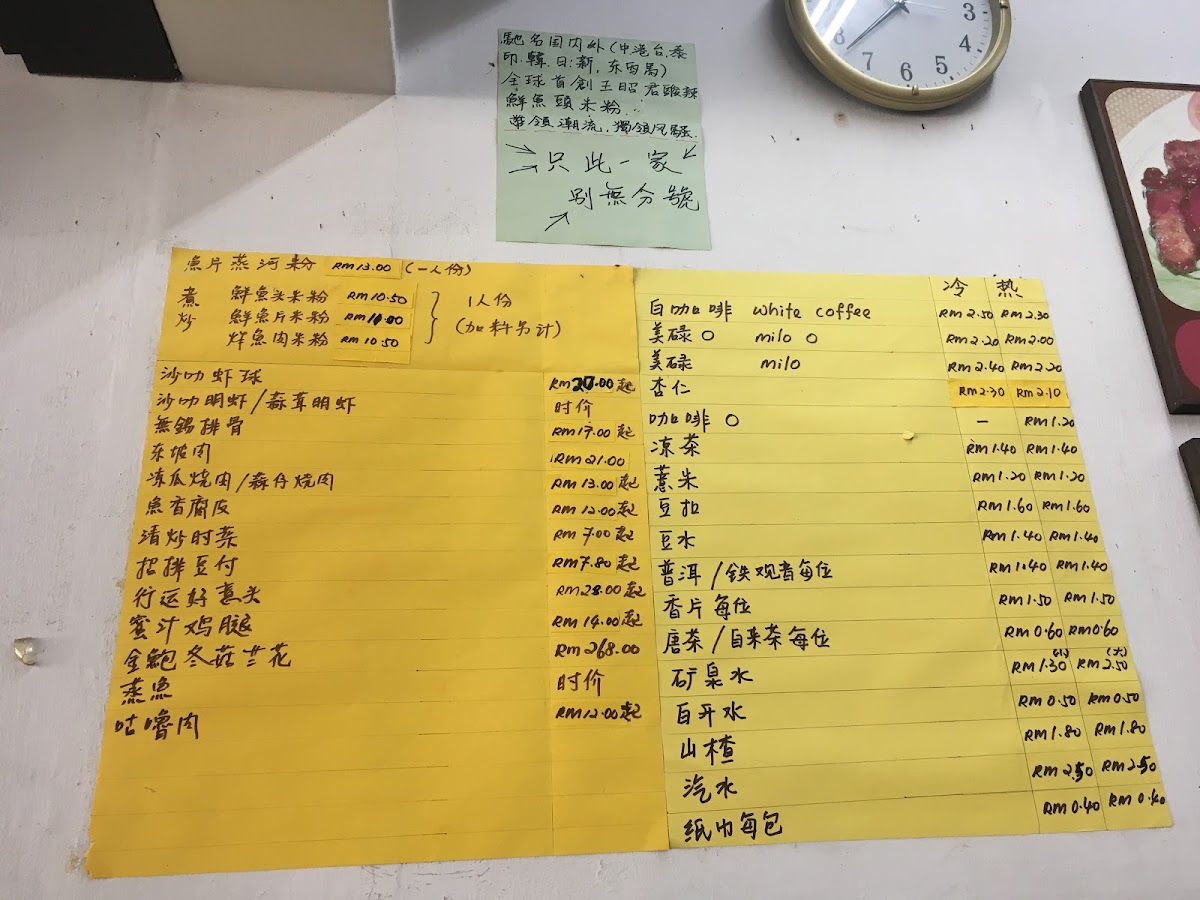 馳名国内外(中.港.台.泰
印.韓.日.新,东西馬)
全球首創王昭君酸辣
鮮魚頭米粉..
帶領潮流,獨領风騷
只此一家
别無分號
3
4
5
6
7
8
魚片蒸河粉 RM13.00 (一人份)
煮 鮮魚头米粉 RM10.50
炒 鮮魚片米粉 RM11.00
鮮魚肉米粉 RM10.50
1人份
(加料另计)
沙叻虾球 RM20.00起
沙叻明虾/蒜茸明虾 时价
無錫排骨 RM17.00起
东坡肉 RM21.00
凉瓜烧肉/蒜仔烧肉 RM13.00起
魚香腐皮 RM12.00起
清炒时菜 RM7.00起
招排豆付 RM7.80起
行运好意头 RM28.00起
蜜汁鸡腿 RM14.00起
金鲍冬菇兰花 RM268.00
蒸魚 时价
咕嚕肉 RM12.00起
冷 热
白咖啡 white coffee RM2.50 RM2.30
美碌O milo O RM2.20 RM2.00
美碌 milo RM2.40 RM2.20
杏仁 RM2.30 RM2.10
咖啡O — RM1.20
凉茶 RM1.40 RM1.40
薏米 RM1.20 RM1.20
豆扣 RM1.60 RM1.60
豆水 RM1.40 RM1.40
普洱/鉄观音每位 RM1.40 RM1.40
香片每位 RM1.50 RM1.50
唐茶/自来茶每位 RM0.60 RM0.60
矿泉水 RM1.30(小) RM2.50(大)
白开水 RM0.50 RM0.50
山楂 RM1.80 RM1.80
汽水 RM2.50 RM2.50
纸巾每包 RM0.40 RM0.40